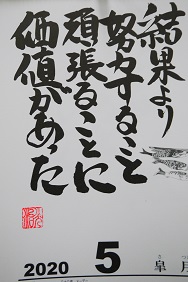 結果より
努力すること
頑張ることに
価値があった
2020 5 皐月